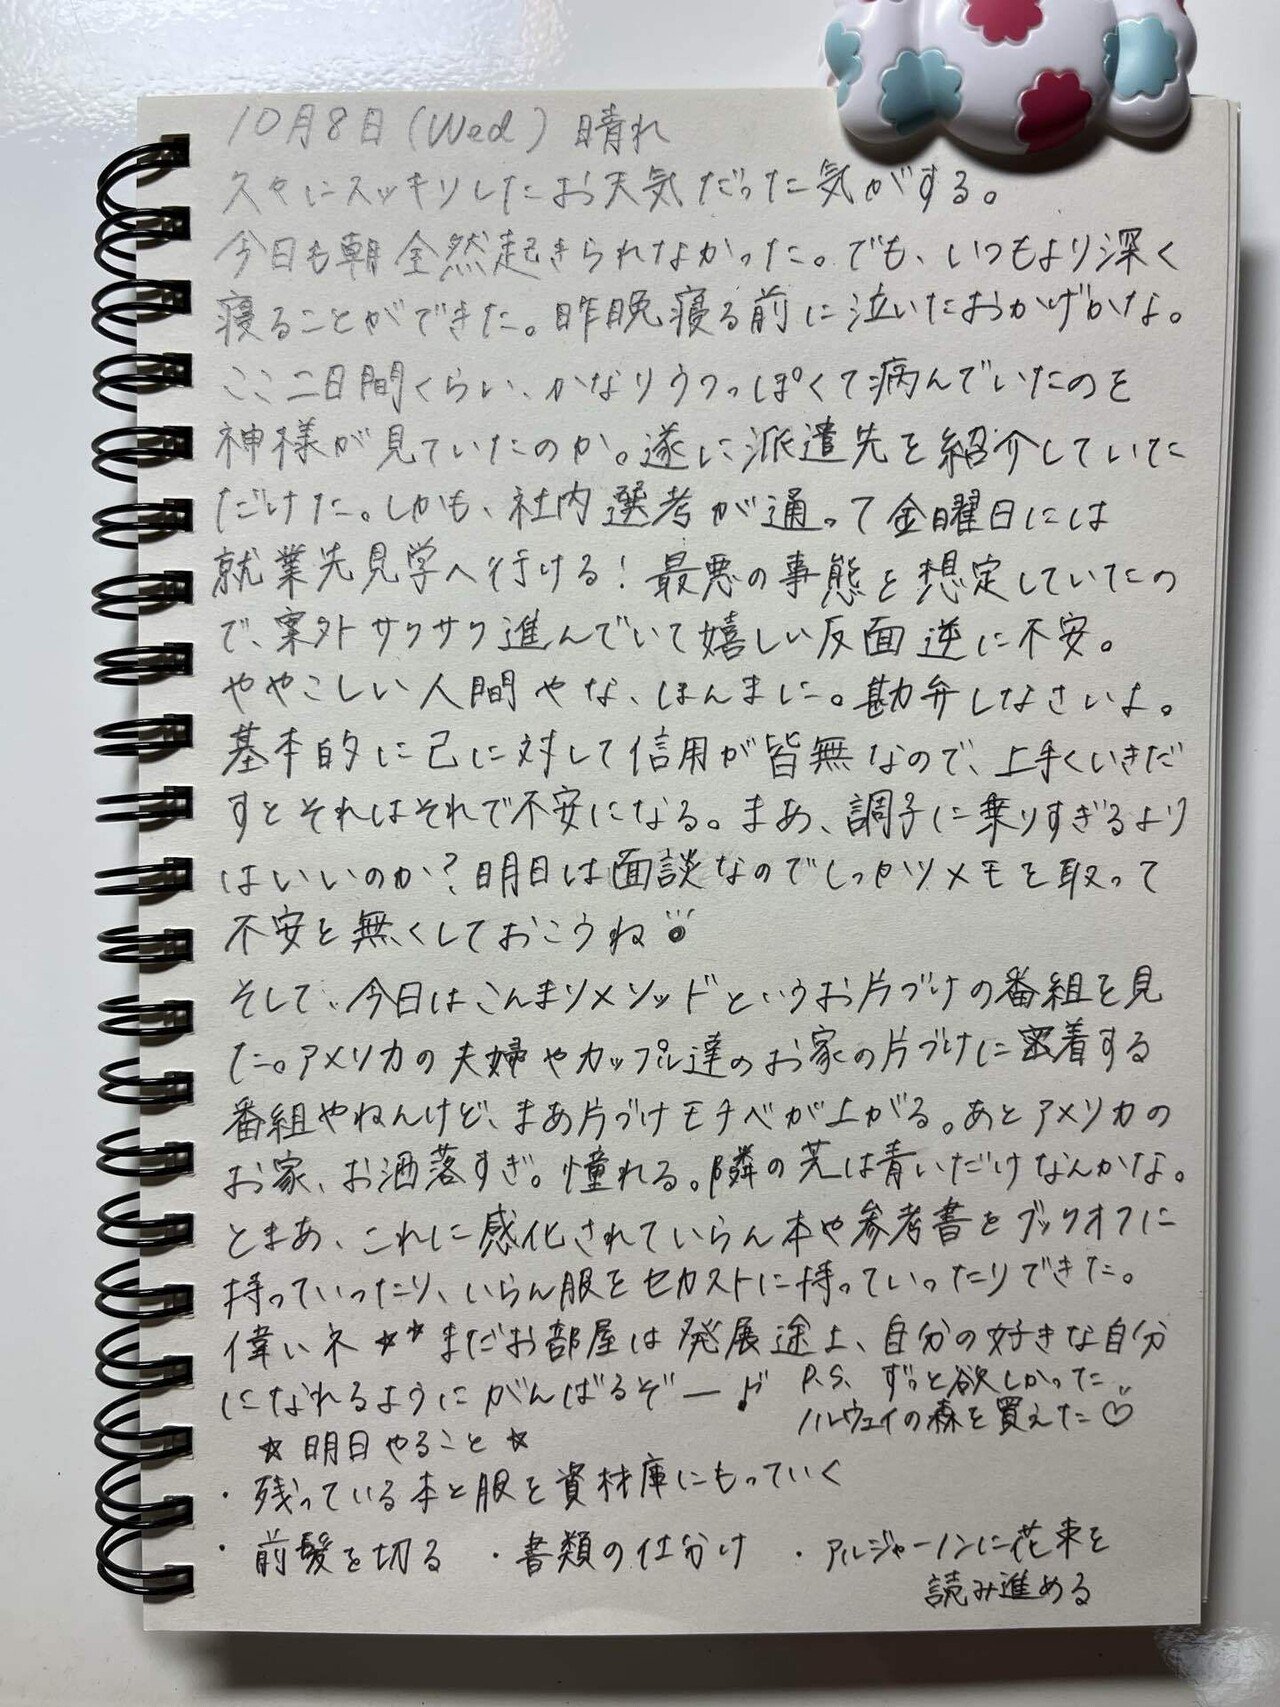 10月8日(Wed) 晴れ
久々にスッキリしたお天気だった気がする。
今日も朝全然起きられなかった。でも、いつもより深く
寝ることができた。昨晩寝る前に泣いたおかげかな。
ここ二日間くらい、かなりウツっぽくて病んでいたのを
神様が見ていたのか。遂に派遣先を紹介していた
だけた。しかも、社内選考が通って金曜日には
就業先見学へ行ける!最悪の事態を想定していたの
で、案外サクサク進んでいて嬉しい反面逆に不安。
ややこしい人間やな、ほんまに。勘弁しなさいよ。
基本的に己に対して信用が皆無なので、上手くいきだ
すとそれはそれで不安になる。まあ、調子に乗りすぎるより
はいいのか?明日は面談なのでしっかりメモを取って
不安を無くしておこうね
そして、今日はこんまりメソッドというお片づけの番組を見
た。アメリカの夫婦やカップル達のお家の片づけに密着する
番組やねんけど、まあ片づけモチベが上がる。あとアメリカの
お家、お洒落すぎ。憧れる。隣の芝は青いだけなんかな。
とまあ、これに感化されていらん本や参考書をブックオフに
持っていったり、いらん服をセカストに持っていったりできた。
偉いネ★★まだお部屋は発展途上、自分の好きな自分
になれるようにがんばるぞー♪
P.S. ずっと欲しかった
ノルウェイの森を買えた♡
☆明日やること☆
・残っている本と服を資材庫にもっていく
・前髪を切る ・書類の仕分け ・アルジャーノンに花束を
読み進める